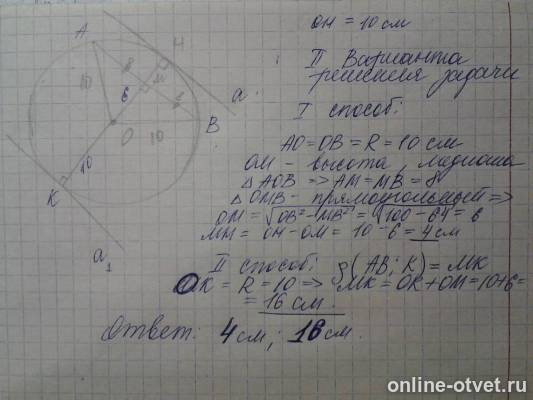 OH = 10 см
II Варианта
решения задачи
I способ:
AO = OB = R = 10 см
OM - высота, медиана
△ AOB => AM = MB = 8
△ OMB - прямоугольный =>
OM = √OB² - MB² = √100 - 64 = 6
MH = OH - OM = 10 - 6 = 4 см
II способ: ρ(AB; K) = MK
OK = R = 10 => MK = OK + OM = 10 + 6 =
= 16 см
Ответ: 4 см; 16 см.
A
H
8
M
10
6
8
a
O
10
B
10
K
a₁
online-otvet.ru